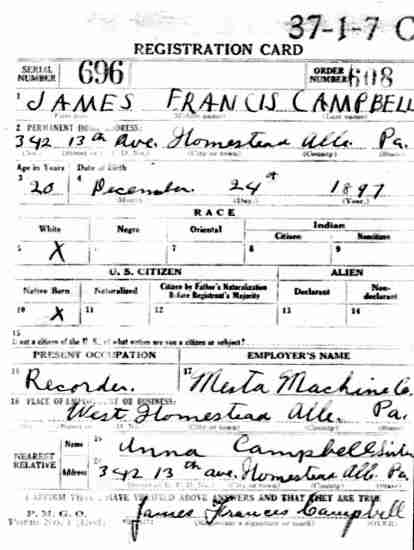 37-1-7 C
REGISTRATION CARD
SERIAL NUMBER 696 ORDER NUMBER 608
1 JAMES FRANCIS CAMPBELL
(First name) (Middle name) (Last name)
2 PERMANENT HOME ADDRESS:
342 13th Ave. Homestead Alle. Pa.
(No.) (Street or R. F. D. No.) (City or town) (County) (State)
Age in Years Date of Birth
3 20 4 December 24th 1897
(Month) (Day) (Year)
RACE
White Negro Oriental Indian
Citizen Noncitizen
5 X 6 7 8 9
U. S. CITIZEN ALIEN
Native Born Naturalized Citizen by Father's Naturalization Before Registrant's Majority Declarant Non-declarant
10 X 11 12 13 14
15
If not a citizen of the U. S., of what nation are you a citizen or subject?
PRESENT OCCUPATION EMPLOYER'S NAME
16 Recorder. 17 Mesta Machine Co.
18 PLACE OF EMPLOYMENT OR BUSINESS:
West Homestead Alle. Pa.
(City or town) (County) (State)
NEAREST RELATIVE
Name 19 Anna Campbell
Address 20 342 13th ave. Homestead Alle. Pa.
I AFFIRM THAT I HAVE VERIFIED ABOVE ANSWERS AND THAT THEY ARE TRUE
P. M. G. O.
Form No. 1 (Red) James Francis Campbell
(Registrant's signature or mark)